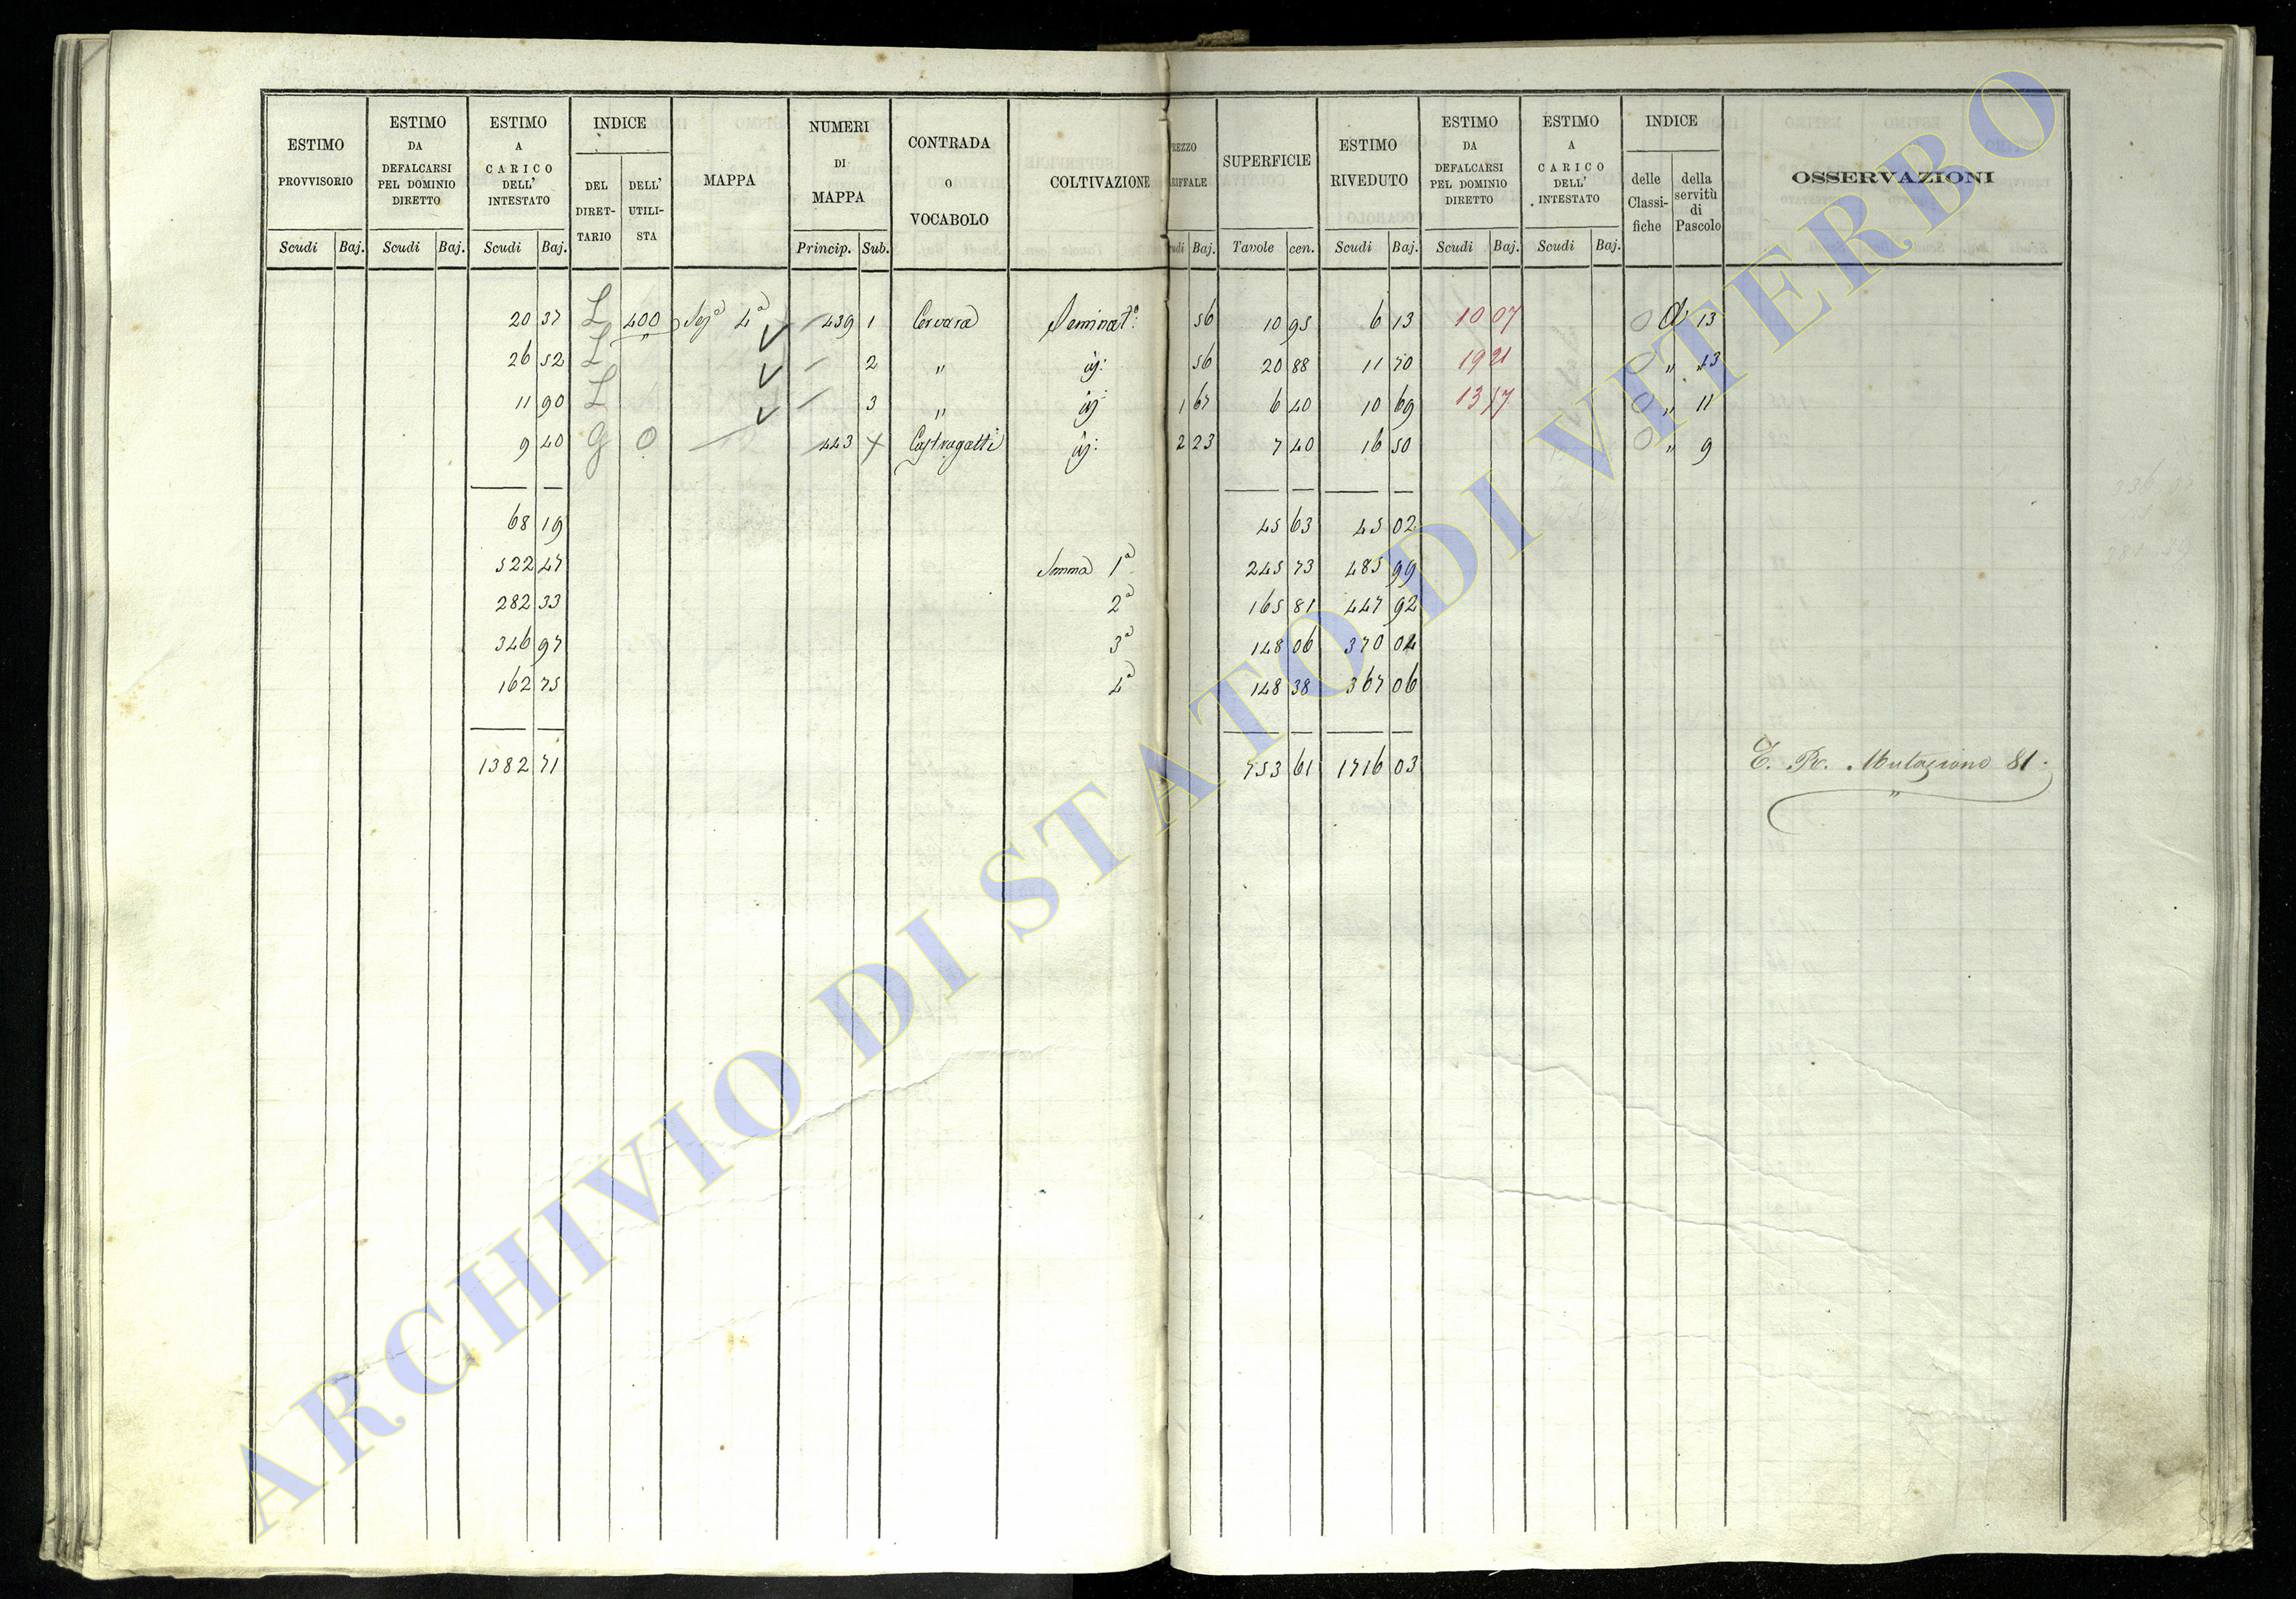 ESTIMO PROVVISORIO | ESTIMO DA DEFALCARSI PEL DOMINIO DIRETTO | ESTIMO A CARICO DELL' INTESTATO | INDICE | MAPPA | NUMERI DI MAPPA | CONTRADA O VOCABOLO | COLTIVAZIONE | REZZO RIFFALE | SUPERFICIE | ESTIMO RIVEDUTO | ESTIMO DA DEFALCARSI PEL DOMINIO DIRETTO | ESTIMO A CARICO DELL' INTESTATO | INDICE | OSSERVAZIONI
DEL DIRET-TARIO | DELL' UTILI-STA | delle Classi-fiche | della servitù di Pascolo
Scudi | Baj. | Scudi | Baj. | Scudi | Baj. | Princip. | Sub. | udi | Baj. | Tavole | cen. | Scudi | Baj. | Scudi | Baj. | Scudi | Baj.
20 37 L 400 Sez.a 4a 439 1 Cervara Seminat.o 56 10 95 6 13 10 07 0 d 13
26 52 L " 2 " id: 56 20 88 11 70 19 21 0 " 13
11 90 L 3 " id: 1 67 6 40 10 69 13 17 0 " 11
9 40 G 0 443 id: 2 23 7 40 16 50 0 " 9
68 19 45 63 45 02
522 47 Somma 1a 245 73 485 99
282 33 2a 165 81 447 92
346 97 3a 148 06 370 04
162 75 4a 148 38 367 06
1382 71 753 61 1716 03
Mutazione 81.
ARCHIVIO DI STATO DI VITERBO